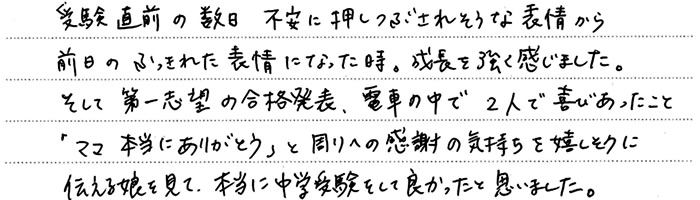 受験直前の数日 不安に押しつぶされそうな表情から
前日のふっきれた表情になった時。成長を強く感じました。
そして第一志望の合格発表、電車の中で2人で喜びあったこと
「ママ本当にありがとう」と周りへの感謝の気持ちを嬉しそうに
伝える娘を見て、本当に中学受験をして良かったと思いました。